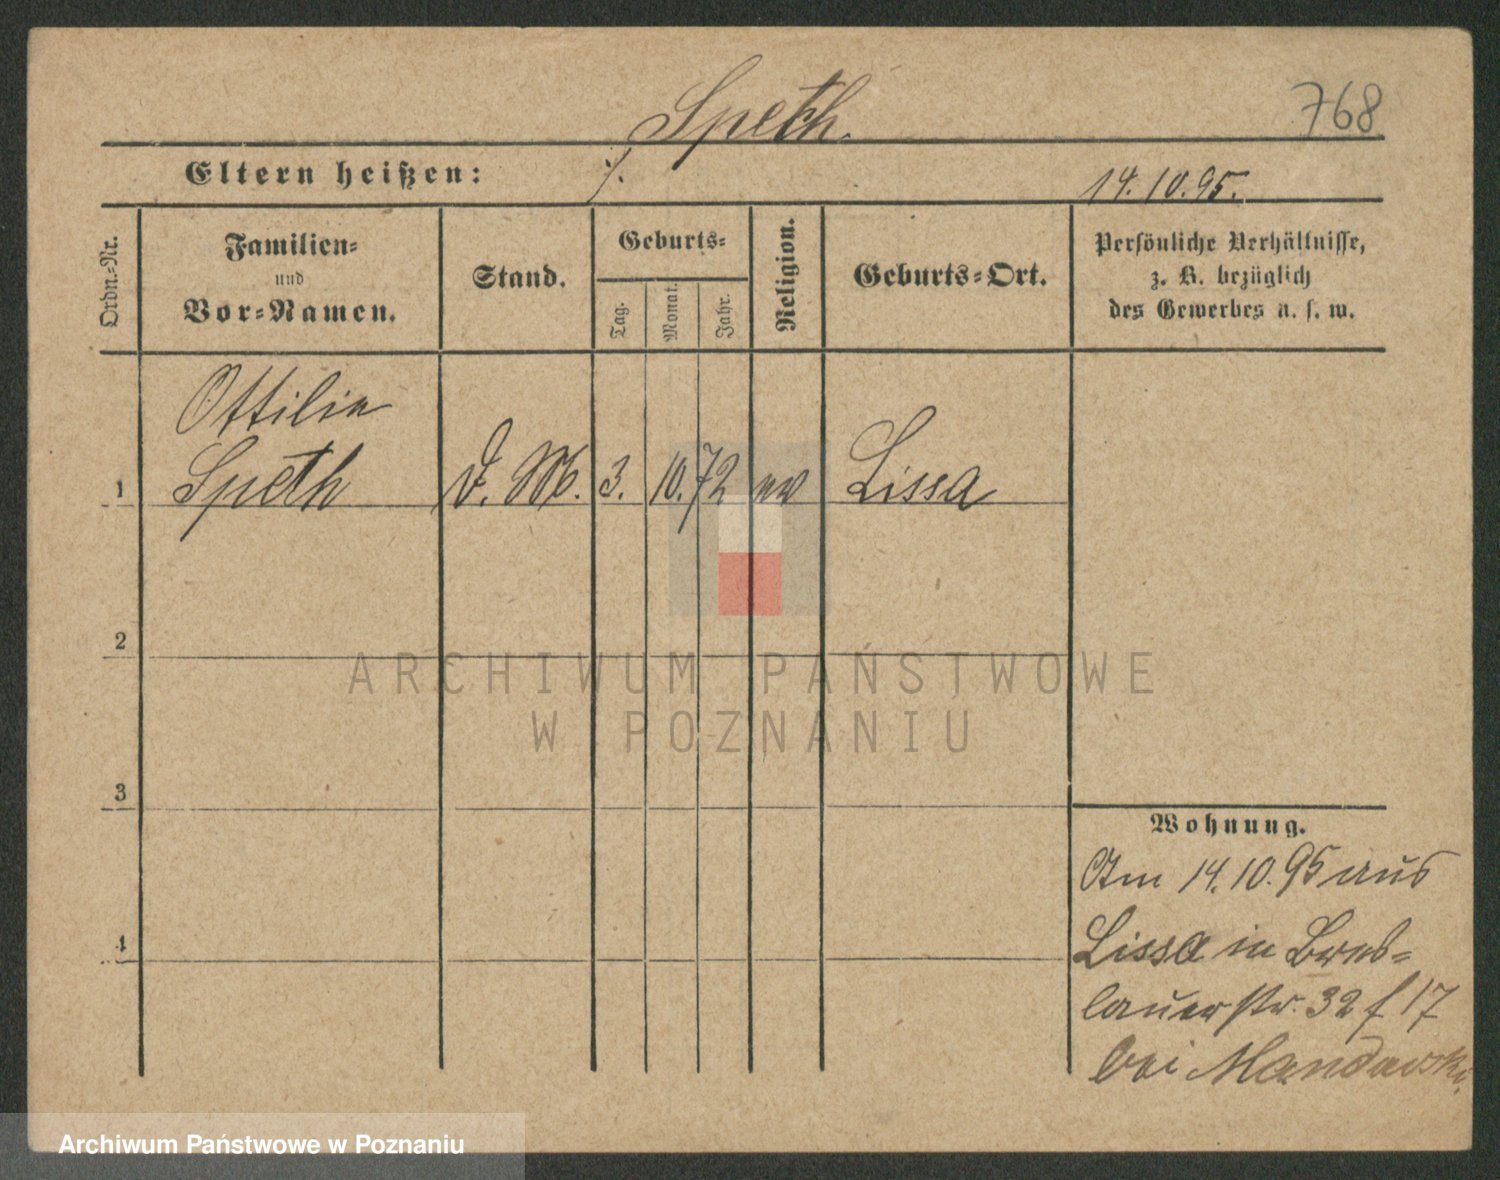 Speth.
768
Eltern heißen:
14. 10. 95.
Ordn.-Nr.
Familien-
und
Vor-Namen.
Stand.
Geburts-
Tag.
Monat.
Jahr.
Religion.
Geburts-Ort.
Persönliche Verhältnisse,
z. B. bezüglich
des Gewerbes u. s. w.
Ottilie
1 Speth D. M. 3. 10. 72 ev Lissa
2
ARCHIWUM PAŃSTWOWE
W POZNANIU
3
Wohnung.
Am 14. 10. 95 aus
Lissa in Bres-
4
lauerstr. 32 f 17
bei
Archiwum Państwowe w Poznaniu